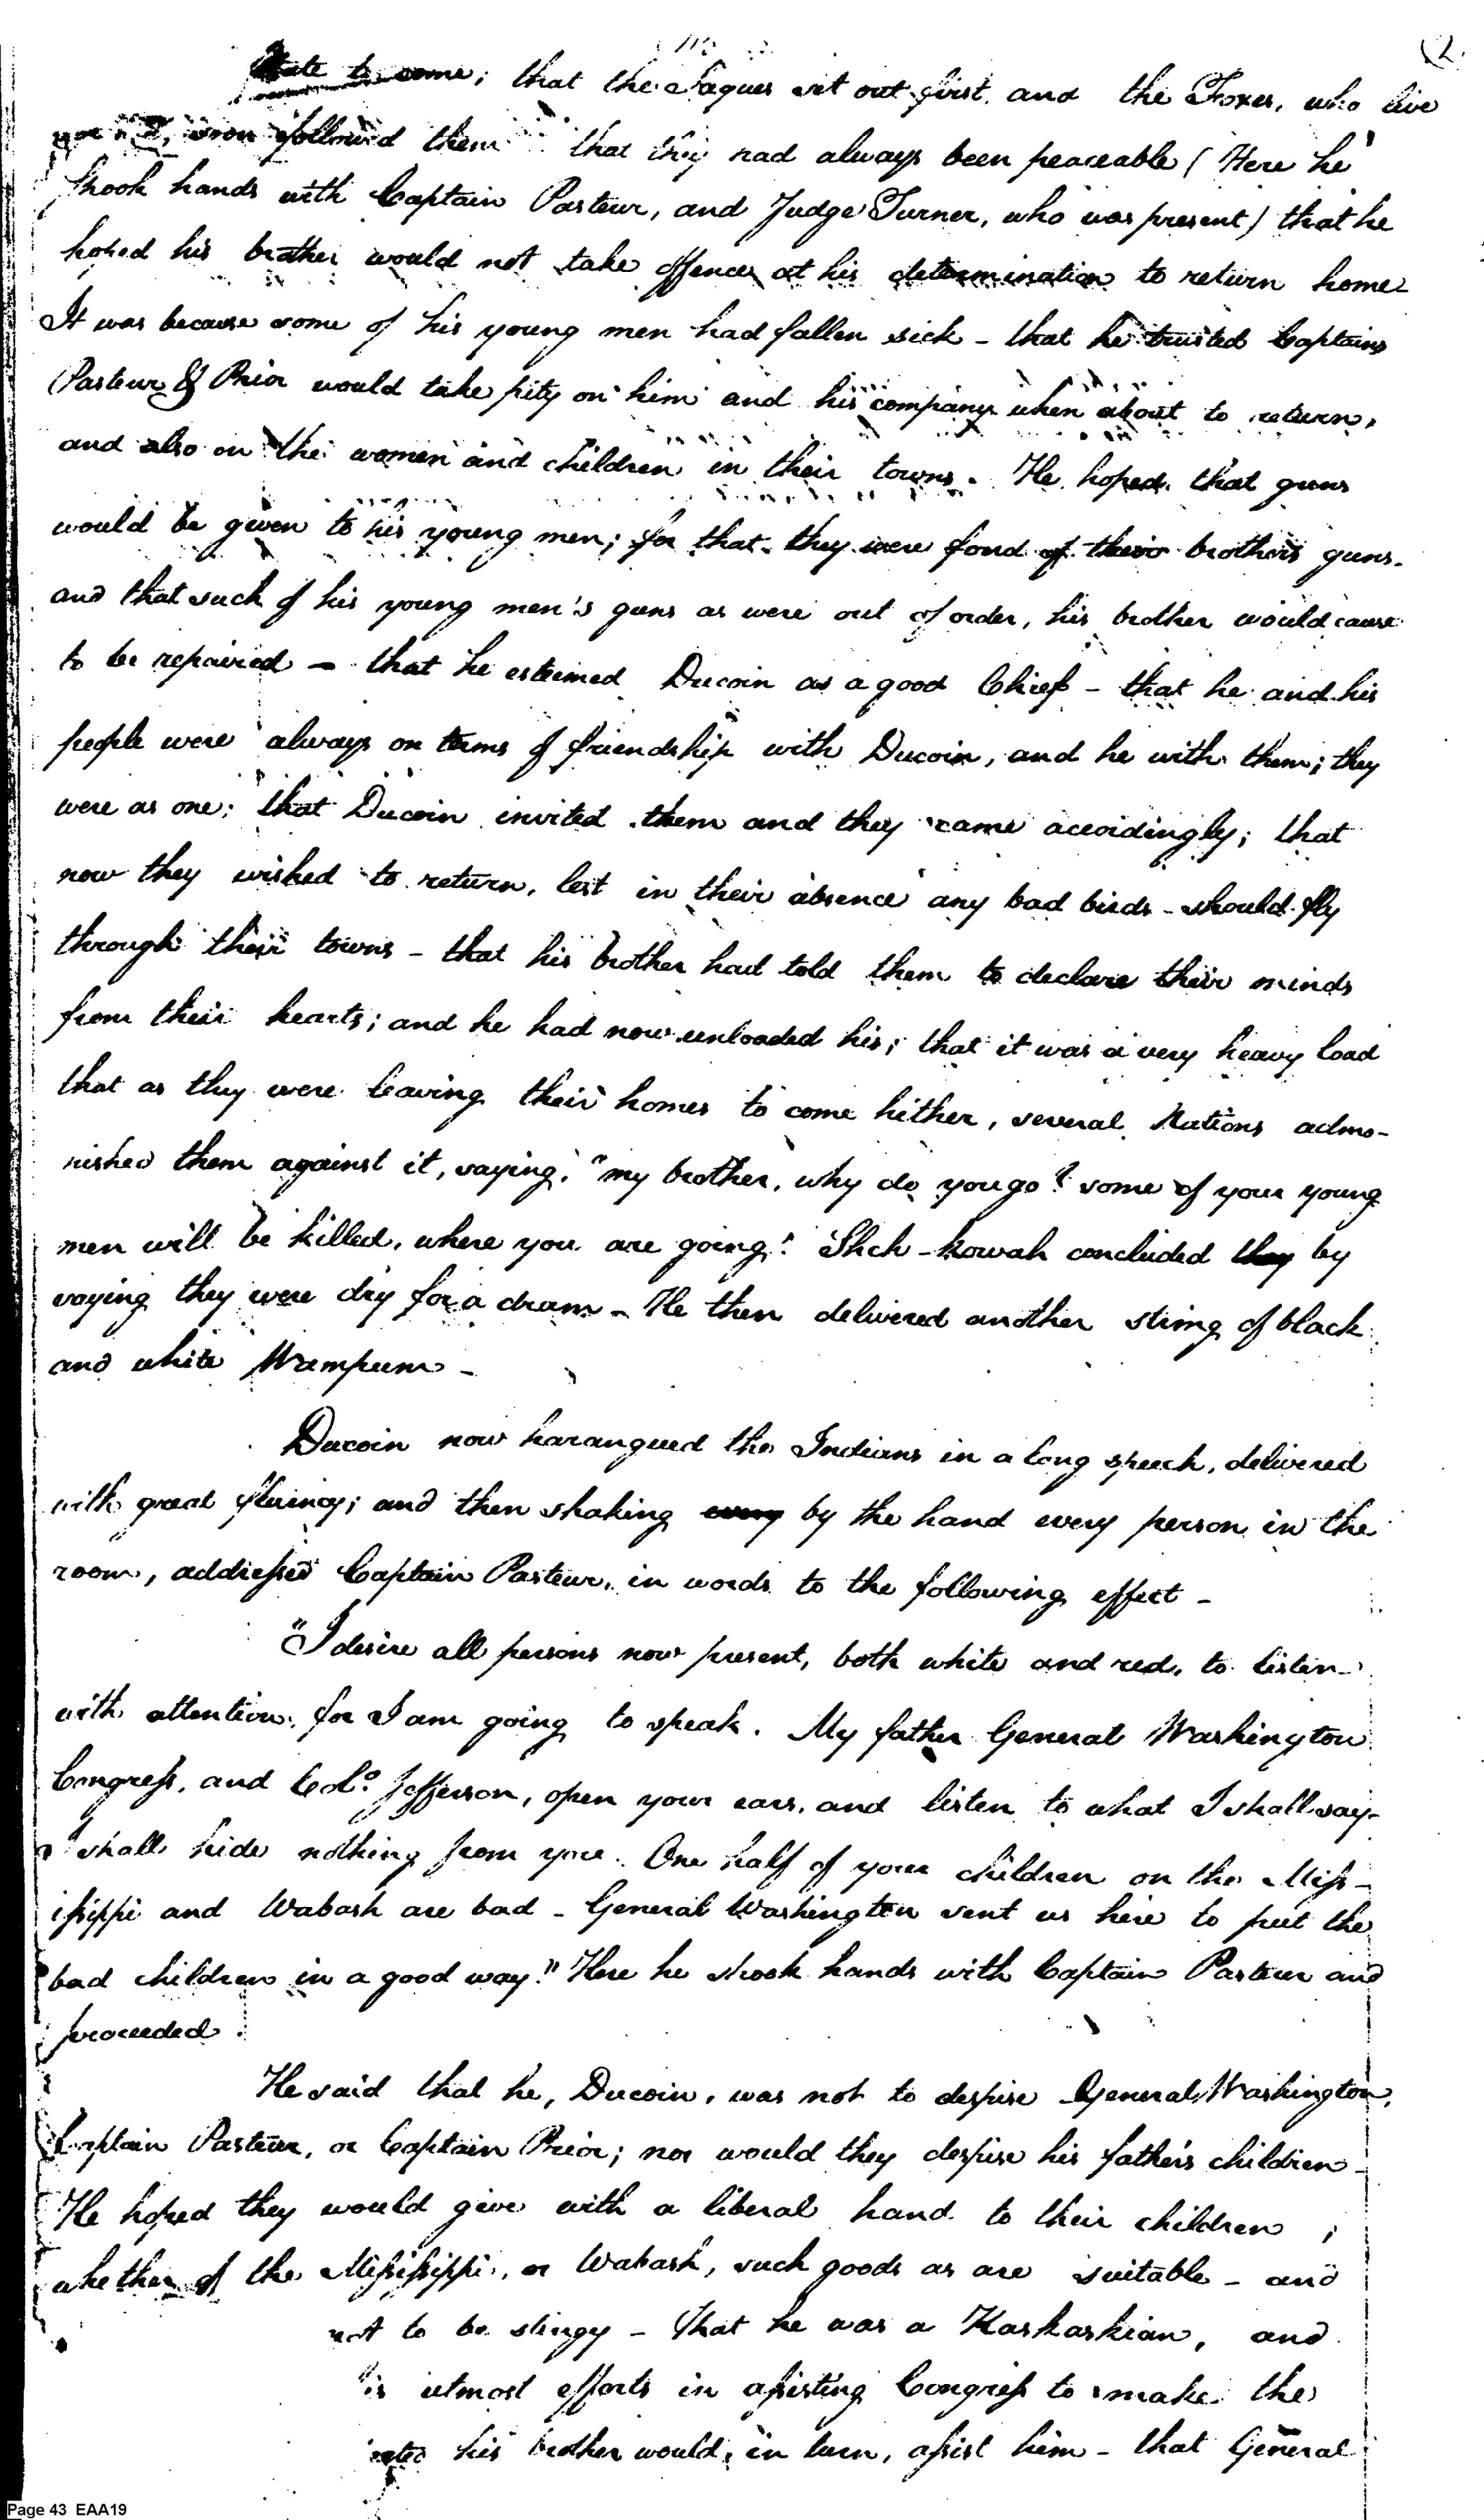 (2.
to come; that the Saques set out first, and the Foxes, who live
soon followed them that they had always been peaceable (Here he
shook hands with Captain Pasteur, and Judge Turner, who was present) that he
hoped his brother would not take offence at his determination to return home
It was because some of his young men had fallen sick - that he trusted Captains
Pasteur & Prior would take pity on him and his company when about to return,
and also on the women and children in their towns. He hoped that guns
would be given to his young men; for that they were fond of their brothers guns.
and that such of his young men's guns as were out of order, his brother would cause
to be repaired - that he esteemed Ducoin as a good Chief - that he and his
people were always on terms of friendship with Ducoin, and he with them; they
were as one; that Ducoin invited them and they came accordingly; that
now they wished to return, lest in their absence any bad birds should fly
through their towns - that his brother had told them to declare their minds
from their hearts; and he had now unloaded his; that it was a very heavy load
that as they were leaving their homes to come hither, several Nations admo-
nished them against it, saying, "my brother, why do you go? some of your young
men will be killed, where you are going." Shck-kowah concluded they by
saying they were dry for a dram - He then delivered another string of black
and white Wampum -
Ducoin now harangued the Indians in a long speech, delivered
with great fluency; and then shaking every by the hand every person in the
room, addressed Captain Pasteur, in words to the following effect -
"I desire all persons now present, both white and red, to listen
with attention, for I am going to speak. My father General Washington
Congress, and Colo. Jefferson, open your ears, and listen to what I shall say-
I shall hide nothing from you. One half of your children on the Miss-
issippi and Wabash are bad - General Washington sent us here to put the
bad children in a good way." Here he shook hands with Captain Pasteur and
proceeded.
He said that he, Ducoin, was not to despise General Washington,
Captain Pasteur, or Captain Prior; nor would they despise his father's children-
He hoped they would give with a liberal hand to their children,
whether of the Mississippi, or Wabash, such goods as are suitable - and
not to be stingy - that he was a Kaskaskian, and
his utmost efforts in assisting Congress to make the
his brother would, in turn, assist him - that General
Page 43 EAA19